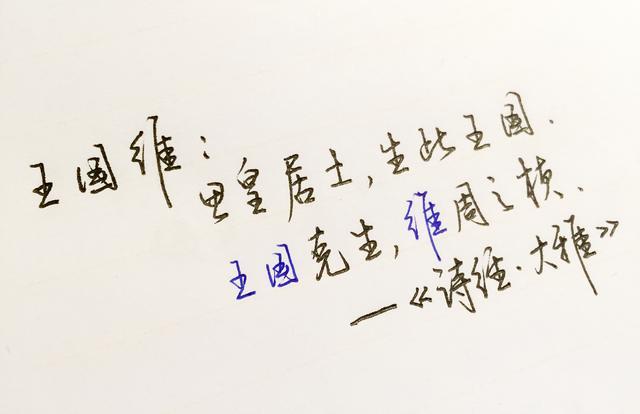 王国维：思皇居士,生此王国.
王国克生,维周之桢.
—《诗经·大雅》